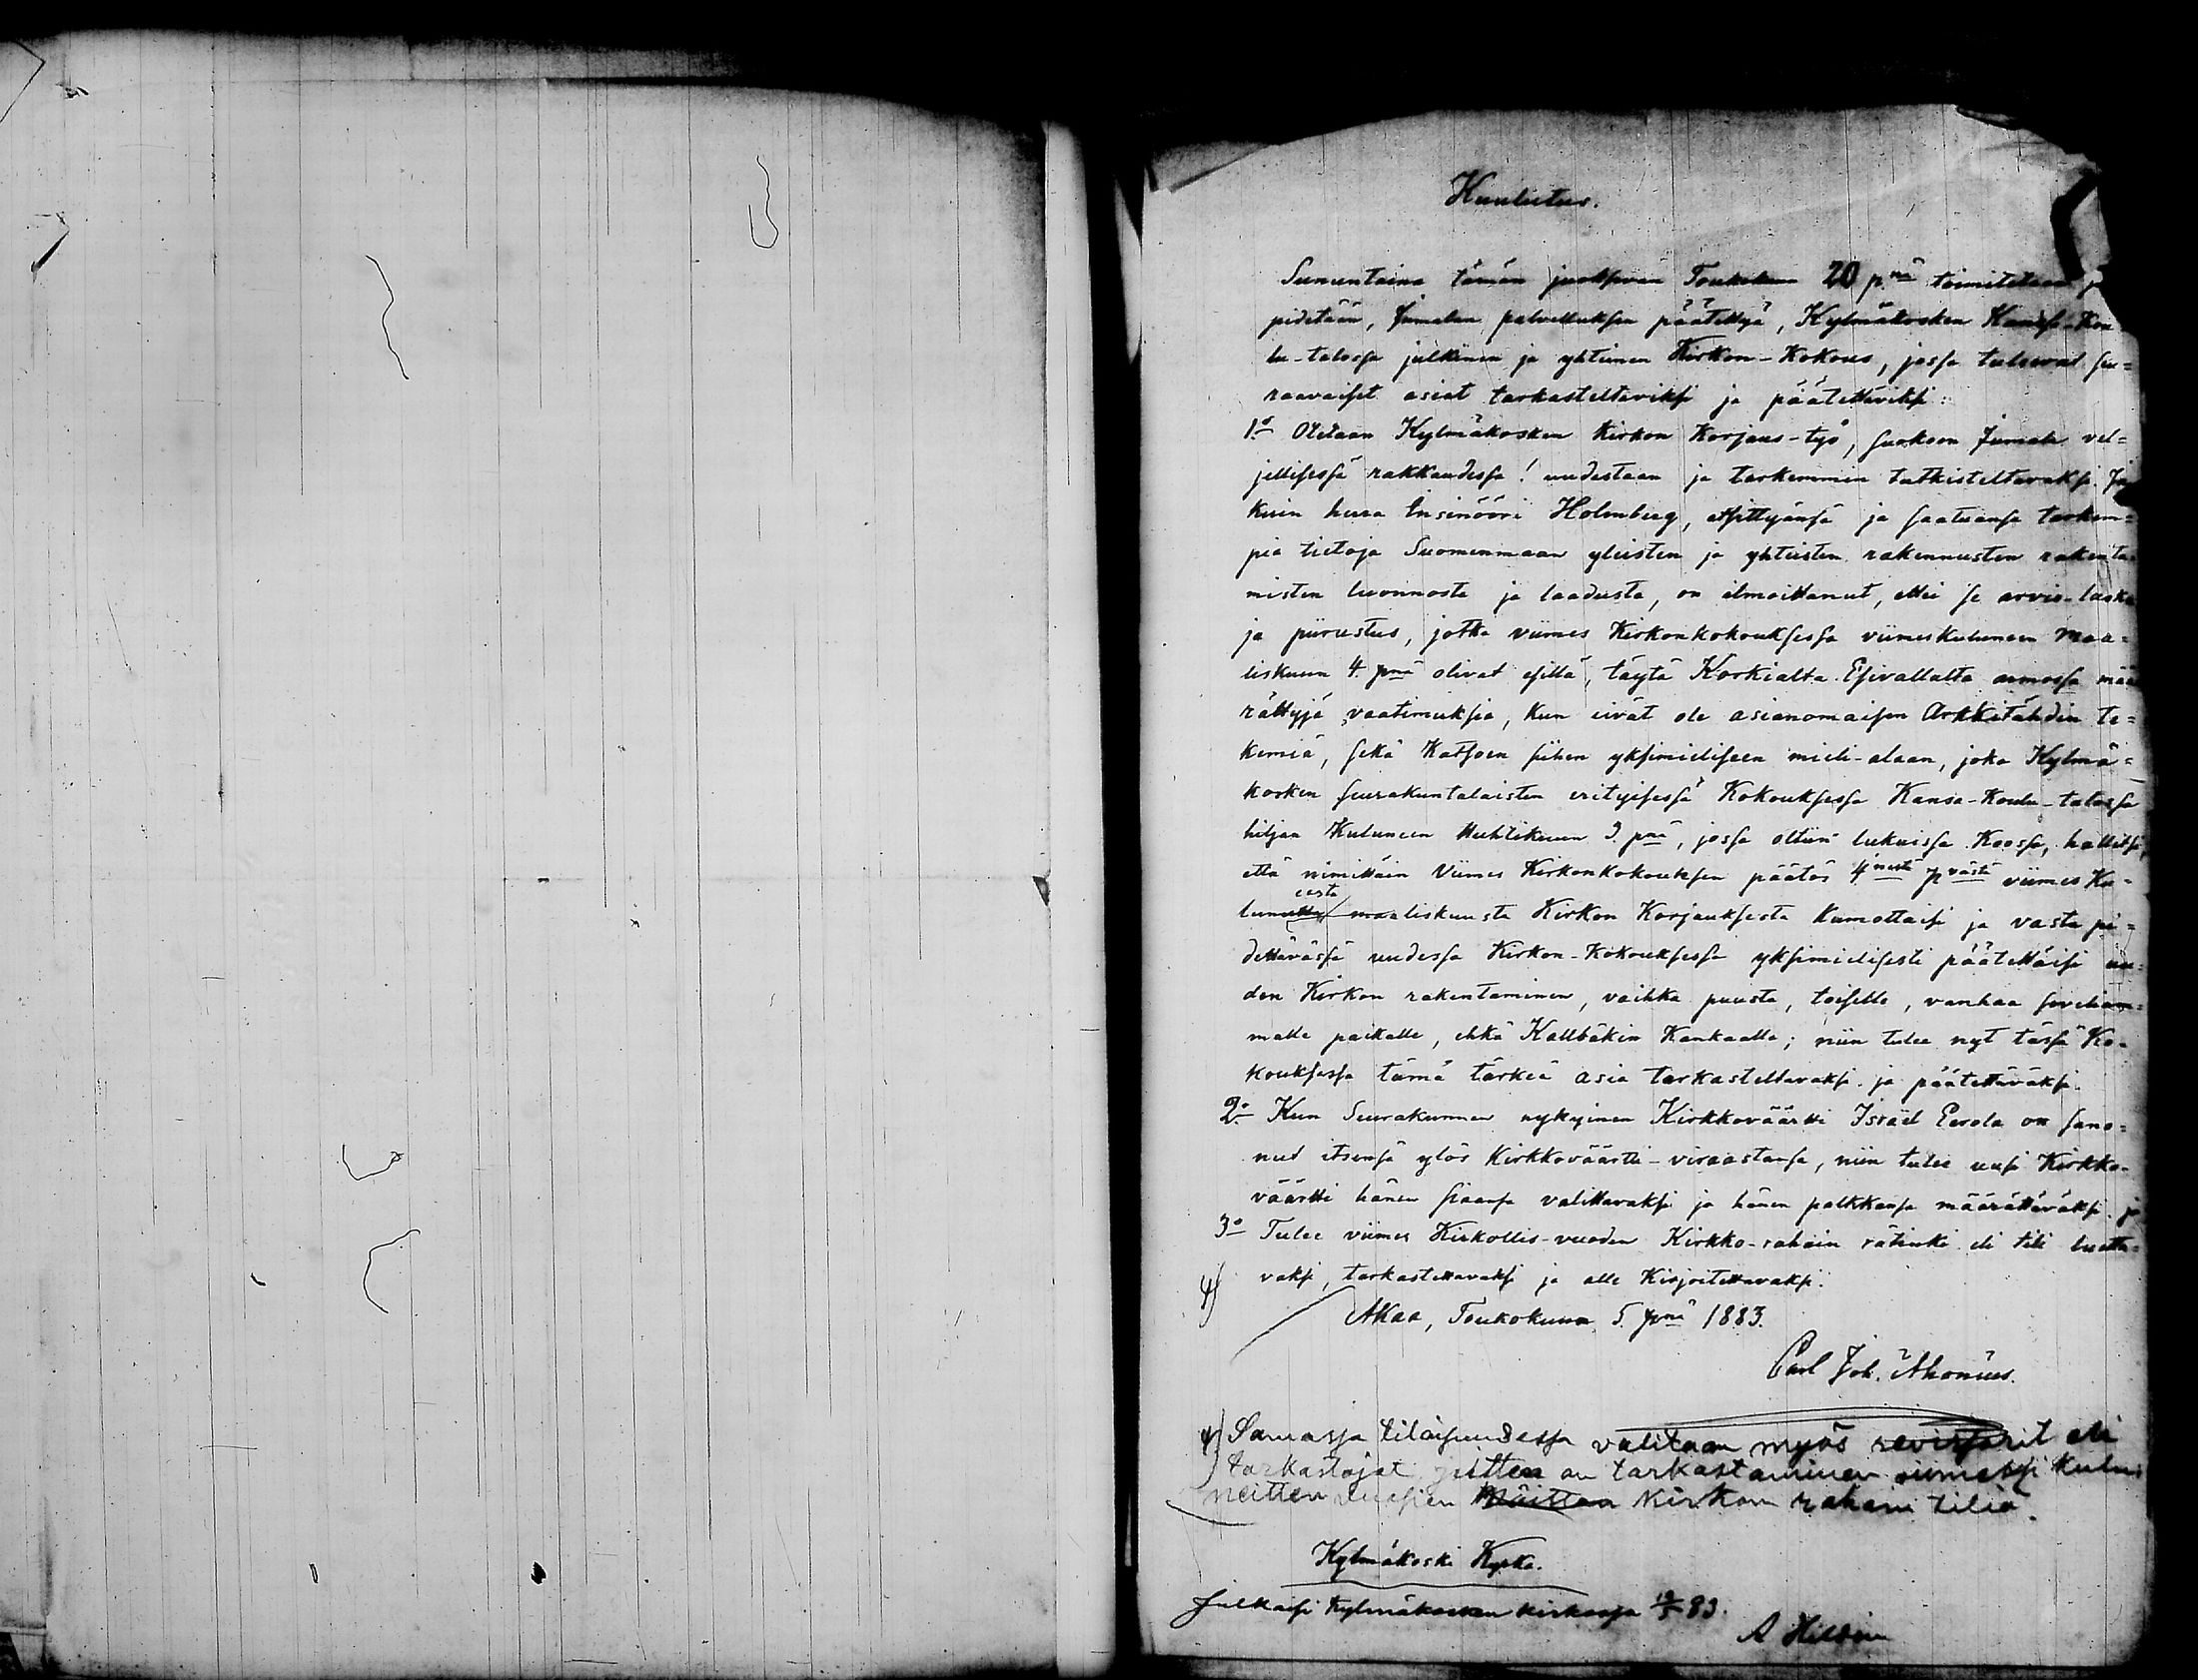 Kuulutus.
Sununtaina tämän juoksevan Toukokuun 20 p:nä toimitetaan ja
pidetään, Jumalan palvelluksen päätettyä, Kylmäkosken Kansa-Kou=
lu-talossa julkinen ja yhteinen Kirkon-Kokous, jossa tulevat seu=
raavaiset asiat tarkasteltaviksi ja päätettäviksi:
1:o Otetaan Kylmäkosken Kirkon Korjaus-työ, suokoon Jumala vel=
jellisessä rakkaudessa! uudestaan ja tarkemmin tutkisteltavaksi. Ja
kuin herra Insinööri Holmberg, etsittyänsä ja saatuansa tarkem=
pia tietoja Suomenmaan yleisten ja yhteisten rakennusten rakenta=
misten luonnosta ja laadusta, on ilmoittanut, ettei se arvio-lasku
ja piirustus, jotka viimes Kirkonkokouksessa viimeskuluneen Maa=
liskuun 4. pnä olivat esillä, täytä Korkialta Esivallalta armossa mää
rättyjä vaatimuksia, kun eivät ole asianomaisen Arkkitähdin te=
kemiä, sekä Katsoen siihen yksimieliseen mieli-alaan, joka Kylmä=
kosken seurakuntalaisten erityisessä Kokouksessa Kansa-Koulu-talossa
hiljan Kuluneen Huhtikuun 3. pnä, jossa oltiin lukuissa Koossa, hallitsi,
että nimittäin Viimes Kirkonkokouksen päätös 4nestä pvästä viimes Ku=
eesta
lunutta maaliskuusta Kirkon Korjauksesta kumottaisi ja vasta pi=
dettävässä uudessa Kirkon-Kokouksessa yksimielisesti päätettäisi uu=
den Kirkon rakentaminen, vaikka puusta, toiselle, vanhaa soveliam=
malle paikalle, ehkä Kallbäkin Kankaalle; niin tulee nyt tässä Ko=
kouksessa tämä tärkeä asia tarkasteltavaksi ja päätettäväksi.
2:o Kun Seurakunnan nykyinen Kirkkoväärtti Israël Eerola on sano=
nut itsensä ylös Kirkkoväärtti-virastansa, niin tulee uusi Kirkko-
väärtti hänen siaansa valittavaksi ja hänen palkkansa määrättäväksi. ja
3:o Tulee viimes Kirkollis-vuoden Kirkko-rahain rätinki eli tili luetta=
vaksi, tarkastettavaksi ja alle Kirjoitettavaksi.
4)
Akaa, Toukokuun 5. pnä 1883.
Carl Joh. Ahonius.
4) Samassa tilaisuudessa valitaan myös revisorit eli
tarkastajat, joitten on tarkastaminen viimeksi kulu
neitten vuosien Näitten Kirkon rahain tiliä.
Kylmäkoski Kyrka.
Julkaisi Kylmäkosken kirkossa 13/5 83.
A Hildén